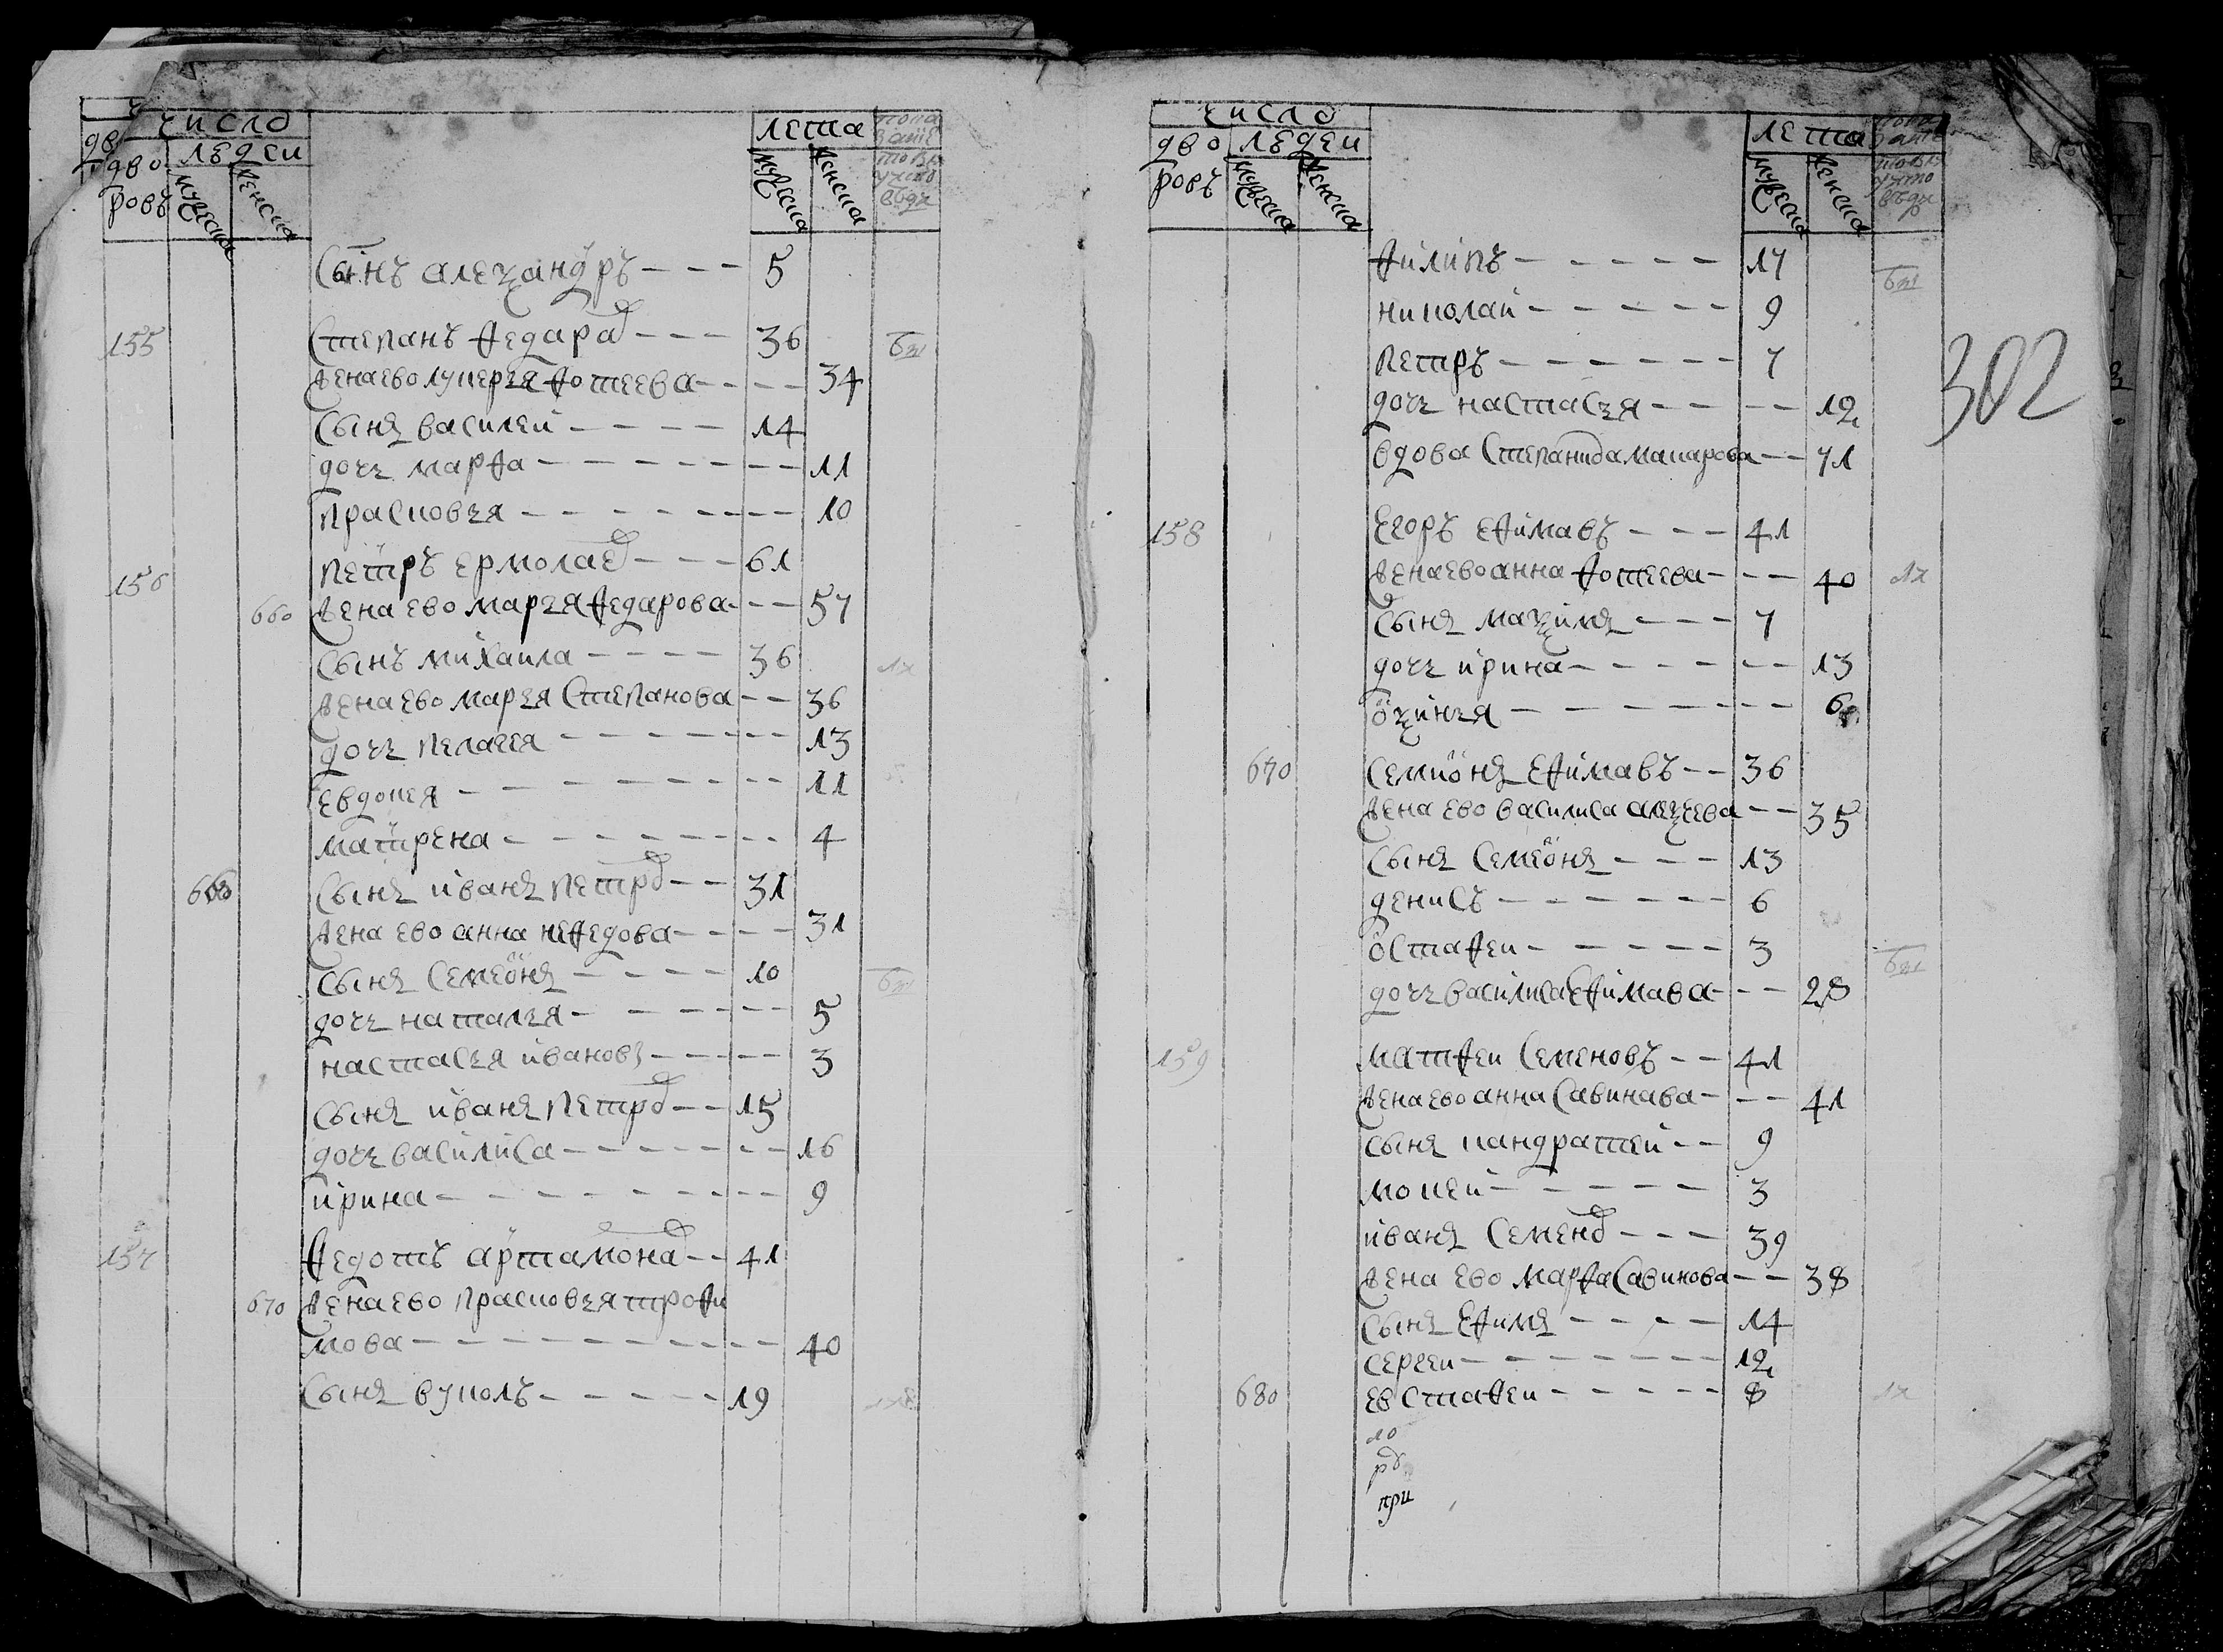 число
дво ледеи
ровъ мужеска женска
лета
мужеска женска
сынъ алеѯандръ - - - 5
155 степанъ федарав - - - 36
жена ево лукерья фотеева - - - - 34
сынъ василеи - - - - 14
дочь марфа - - - - - - - - 11
прасковья - - - - - - - - 10
156 петръ ермолаев - - - 61
660 жена ево марья федарова - - - 57
сынъ михаила - - - - 36
жена ево марья степанова - - 36
дочь пелагея - - - - - - - 13
евдокея - - - - - - - - 11
матрена - - - - - - - - 4
660 сынъ иванъ петров - - 31
жена ево анна нефедова - - - - 31
сынъ семеонъ - - - - 10
дочь наталья - - - - - - 5
настасья иванова - - - - - 3
сынъ иванъ петров - - 15
дочь василиса - - - - - - - 16
ирина - - - - - - - - - 9
157 федотъ артамонав - - 41
670 жена ево прасковья трофи
мова - - - - - - - - - - 40
сынъ вуколъ - - - - - 19
число
дво ледеи
ровъ мужеска женска
лета
мужеска женска
302
филипъ - - - - - - 17
николаи - - - - - - 9
петръ - - - - - - - 7
дочь настасья - - - - - 12
вдова степанида макарова - - 71
158 егоръ ефимавъ - - - 41
жена ево анна фотеева - - - 40
сынъ маѯимъ - - - 7
дочь ирина - - - - - - 13
оѯинья - - - - - - - - 6
670 семионъ ефимавъ - - 36
жена ево василиса алеѯеева - - 35
сынъ семеонъ - - - 13
денисъ - - - - - - 6
остафеи - - - - - 3
дочь василиса ефимава - - - 28
159 матфеи семеновъ - - 41
жена ево анна савинава - - - 41
сынъ кандратеи - - 9
мокеи - - - - - - 3
иванъ семенов - - - 39
жена ево марфа савинова - - 38
сынъ ефимъ - - - - 14
сергеи - - - - - - - 12
680 евстафеи - - - - - 8
при